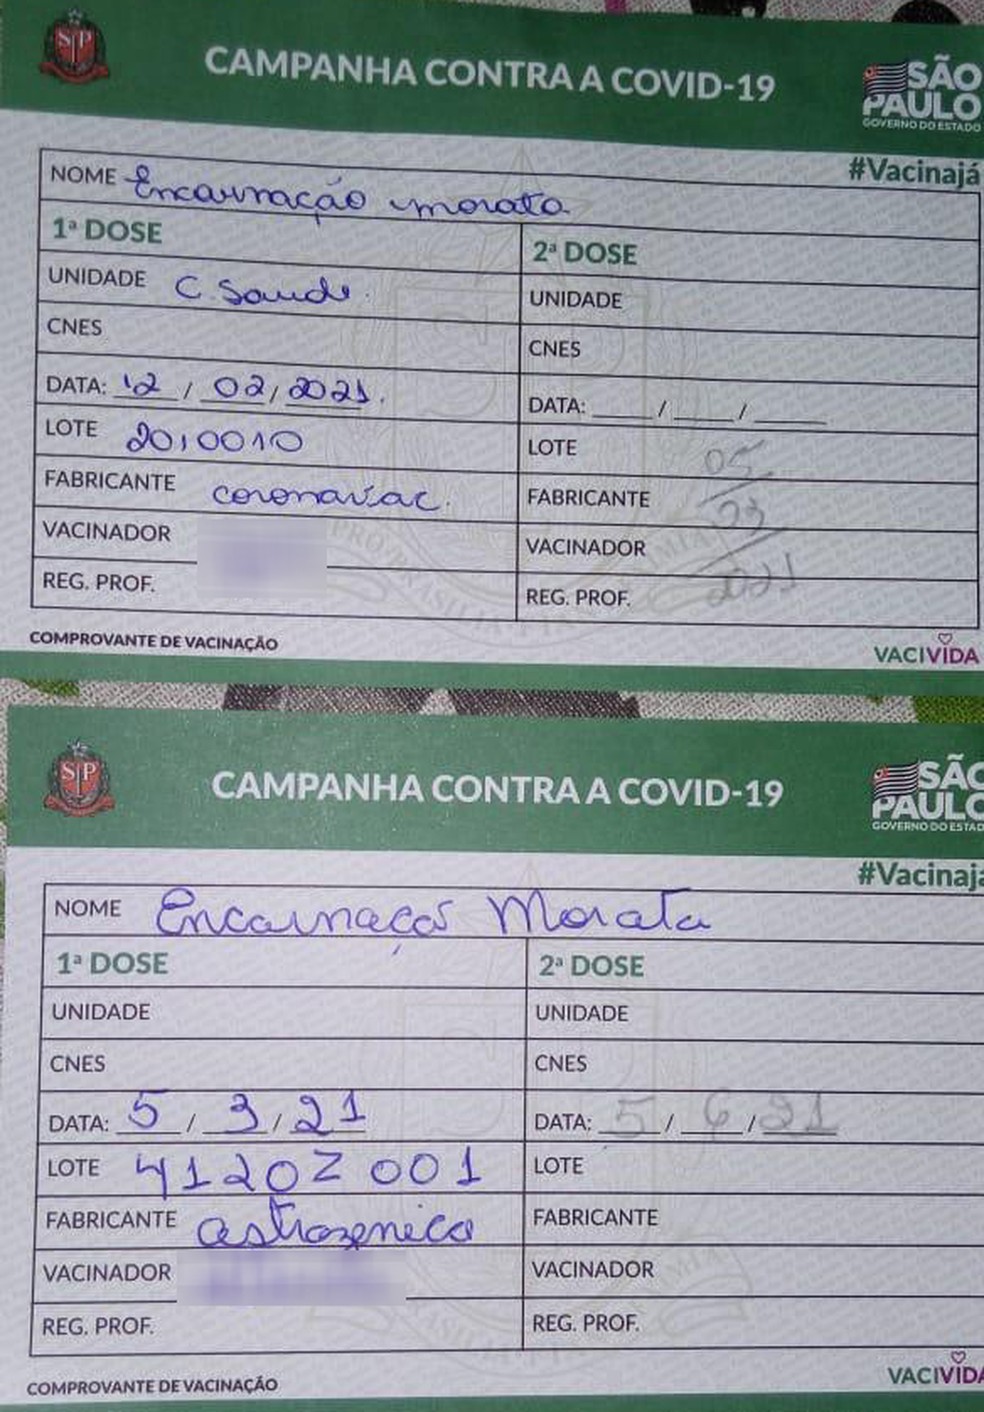 SP
CAMPANHA CONTRA A COVID-19
SÃO
PAULO
GOVERNO DO ESTADO
#Vacinajá
NOME Encarnação morata
1ª DOSE
2ª DOSE
UNIDADE C. Saude.
UNIDADE
CNES
CNES
DATA: 12 / 02 / 2021.
DATA: ____ / ____ / ____
LOTE 2010010
LOTE
05
FABRICANTE coronavac.
FABRICANTE
03
VACINADOR
VACINADOR
2021
REG. PROF.
REG. PROF.
COMPROVANTE DE VACINAÇÃO
VACIVIDA
SP
CAMPANHA CONTRA A COVID-19
SÃO
PAULO
GOVERNO DO ESTADO
#Vacinajá
NOME Encarnaçaõ Morata
1ª DOSE
2ª DOSE
UNIDADE
UNIDADE
CNES
CNES
DATA: 5 / 3 / 21
DATA: 5 / 6 / 21
LOTE 4120Z001
LOTE
FABRICANTE astrozenica
FABRICANTE
VACINADOR
VACINADOR
REG. PROF.
REG. PROF.
COMPROVANTE DE VACINAÇÃO
VACIVIDA